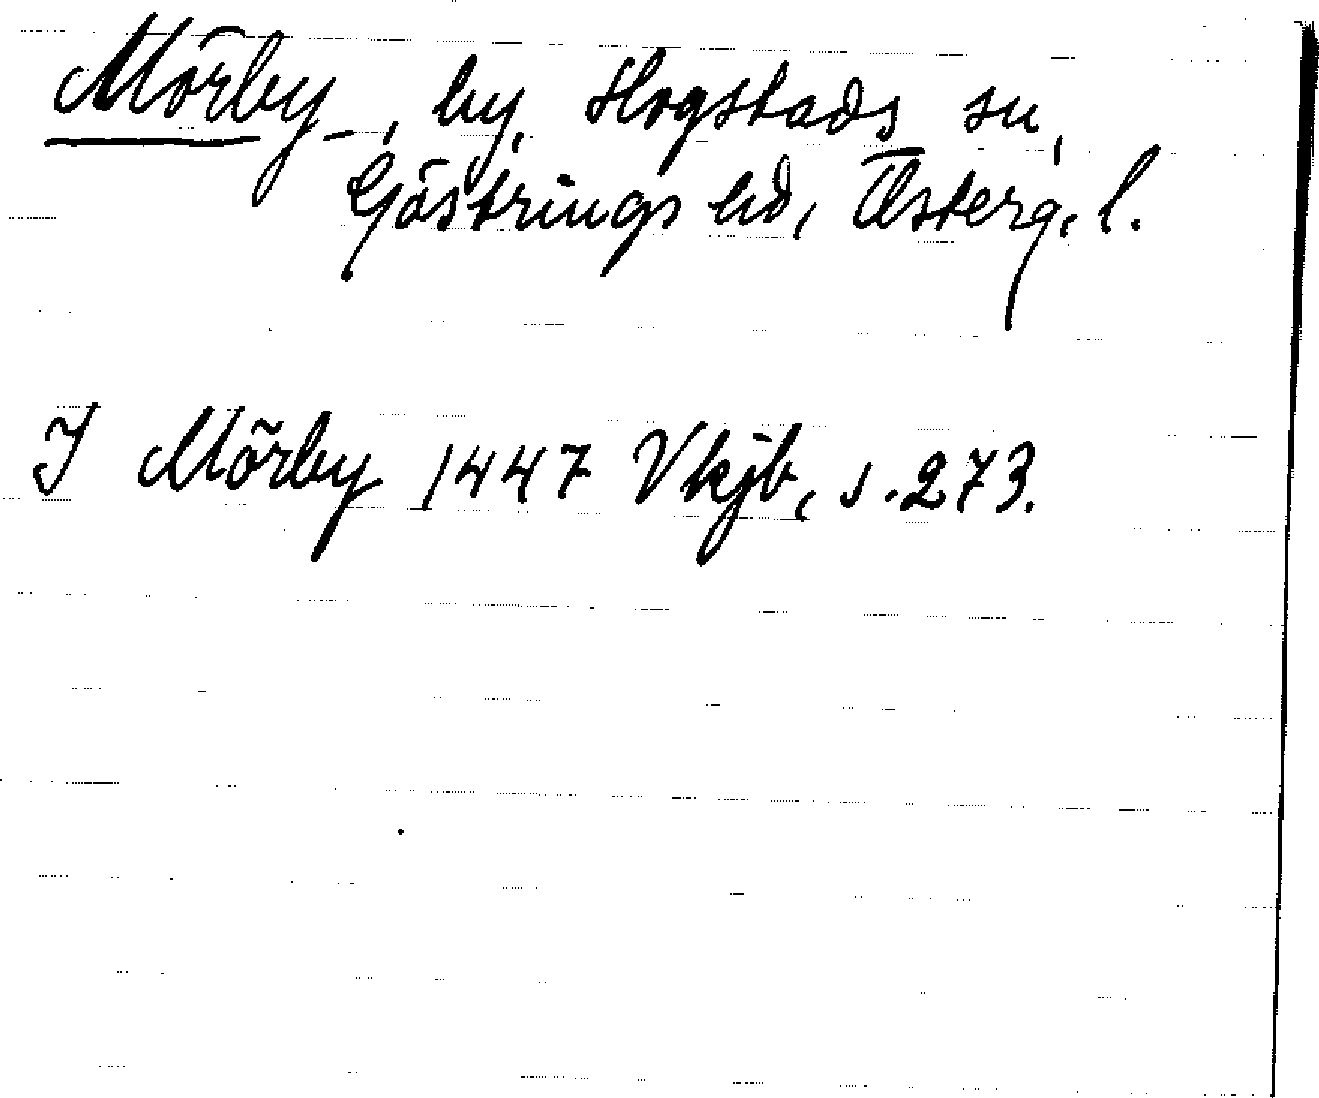 Mörby, by, Hogstads sn,
Göstrings hd, Österg. l.
I Mörby 1447 Vkjb, s. 273.